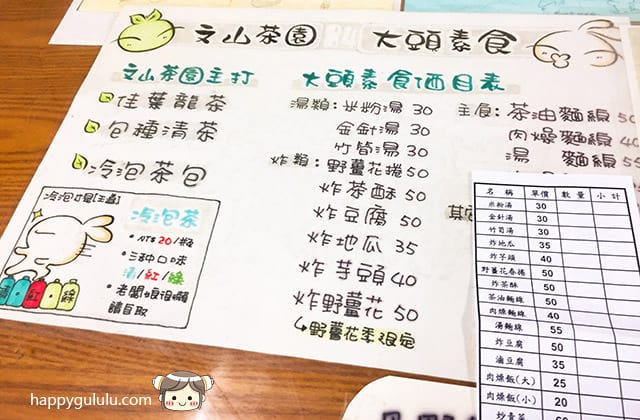 文山茶園 大頭素食
文山茶園主打
佳葉龍茶
包種清茶
冷泡茶包
冷泡茶
• NT$ 20/瓶
• 三種口味
清/紅/綠
• 老闆娘很懶
請自取
清 紅 綠
大頭素食価目表
湯類：米粉湯 30
金針湯 30
竹筍湯 30
炸類：野薑花捲 50
炸茶酥 50
炸豆腐 50
炸地瓜 35
炸芋頭 40
炸野薑花 50
↳野薑花季限定
主食：茶油麵線 50
肉燥麵線 40
湯 麵線 55
名 稱 單價 數 量 小 計
米粉湯 30
金針湯 30
竹筍湯 30
炸地瓜 35
炸芋頭 40
野薑花春捲 50
炸茶酥 50
茶油麵線 50
肉燥麵線 40
湯麵線 55
炸豆腐 50
滷豆腐 25
肉燥飯(大) 25
肉燥飯(小) 20
炒青菜
happygululu.com